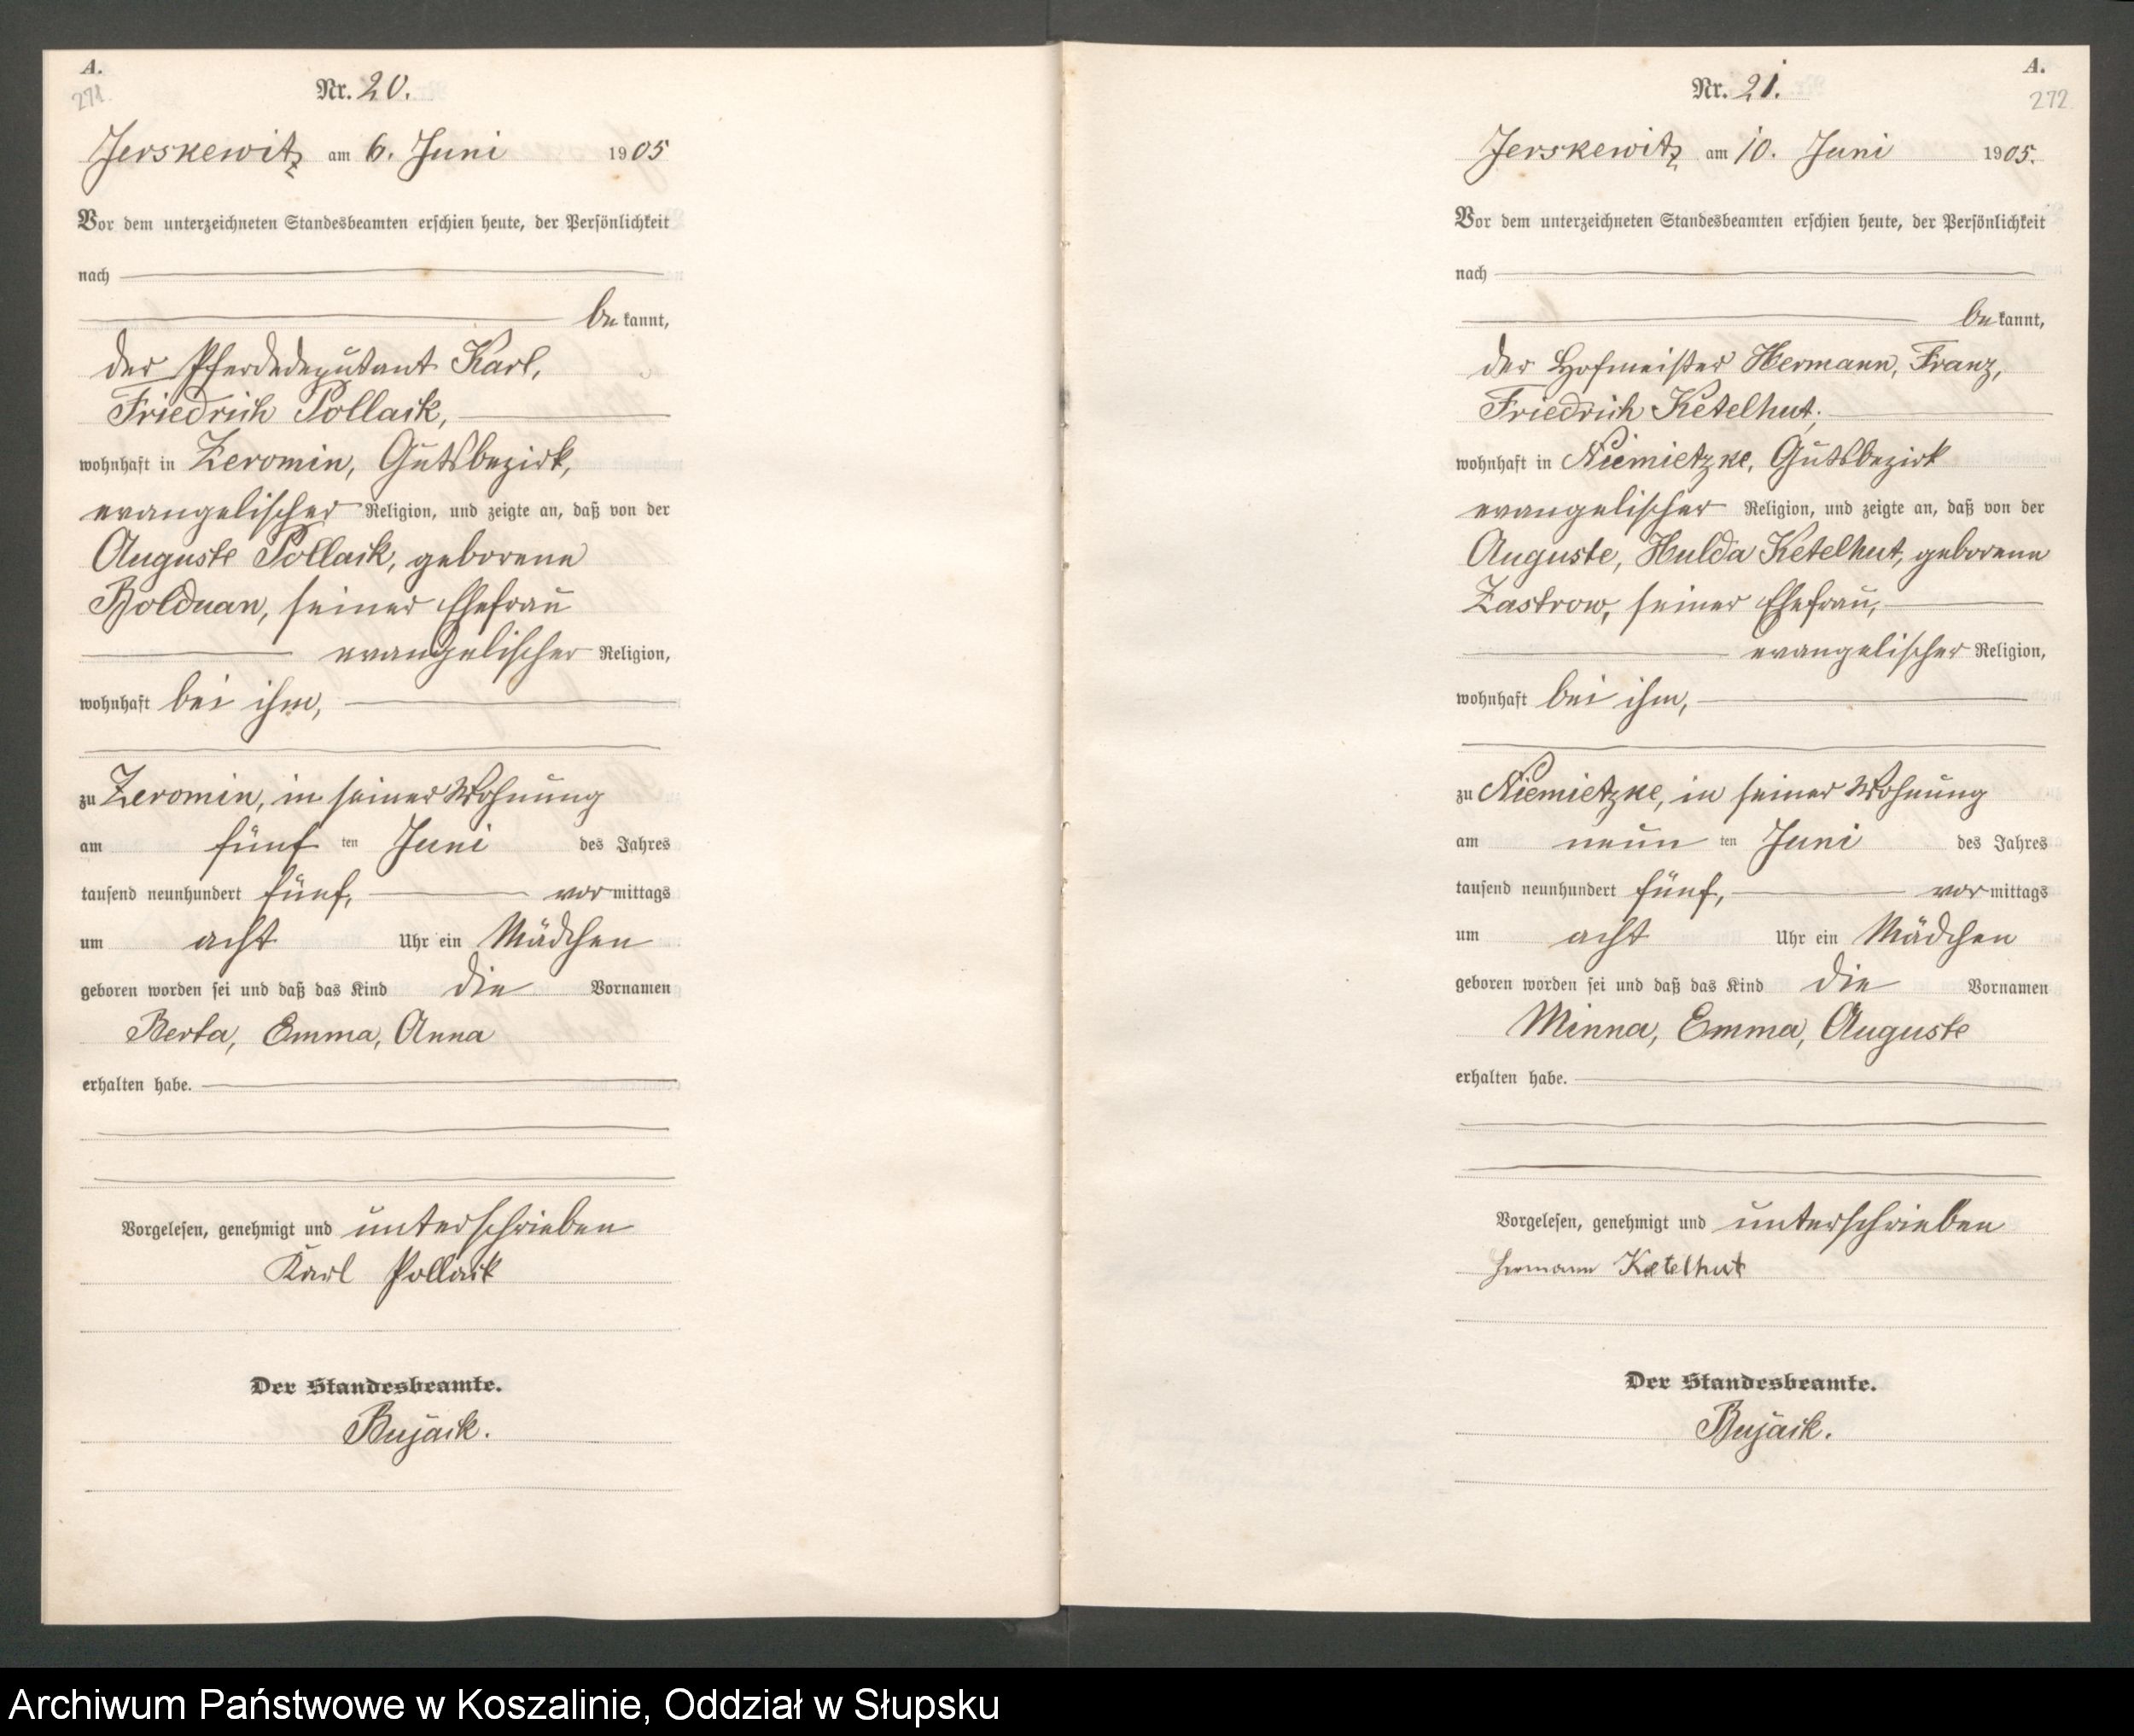 A.
271
Nr. 20.
Jerskewitz am 6. Juni 1905
Vor dem unterzeichneten Standesbeamten erschien heute, der Persönlichkeit
nach
be kannt,
der Pferdedeputant Karl,
Friedrich Pollack,
wohnhaft in Zeromin, Gutsbezirk,
evangelischer Religion, und zeigte an, daß von der
Auguste Pollack, geborene
Bolduan, seiner Ehefrau
evangelischer Religion,
wohnhaft bei ihm,
zu Zeromin, in seiner Wohnung
am fünf ten Juni des Jahres
tausend neunhundert fünf, vor mittags
um acht Uhr ein Mädchen
geboren worden sei und daß das Kind die Vornamen
Berta, Emma, Anna
erhalten habe.
Vorgelesen, genehmigt und unterschrieben
Karl Pollack
Der Standesbeamte.
Bujack.
A.
272
Nr. 21.
Jerskewitz am 10. Juni 1905.
Vor dem unterzeichneten Standesbeamten erschien heute, der Persönlichkeit
nach
be kannt,
der Hofmeister Hermann, Franz,
Friedrich Ketelhut,
wohnhaft in Niemietzke, Gutsbezirk
evangelischer Religion, und zeigte an, daß von der
Auguste, Hulda Ketelhut, geborene
Zastrow, seiner Ehefrau,
evangelischer Religion,
wohnhaft bei ihm,
zu Niemietzke, in seiner Wohnung
am neun ten Juni des Jahres
tausend neunhundert fünf, vor mittags
um acht Uhr ein Mädchen
geboren worden sei und daß das Kind die Vornamen
Minna, Emma, Auguste
erhalten habe.
Vorgelesen, genehmigt und unterschrieben
Hermann Ketelhut
Der Standesbeamte.
Bujack.
Archiwum Państwowe w Koszalinie, Oddział w Słupsku